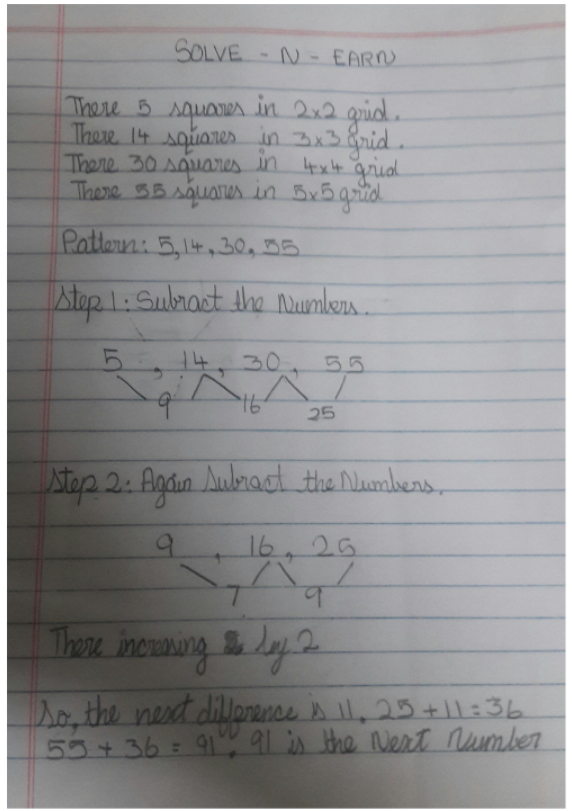 SOLVE - N - EARN
There 5 squares in 2x2 grid.
There 14 squares in 3x3 grid.
There 30 squares in 4x4 grid
There 55 squares in 5x5 grid
Pattern: 5,14, 30, 55
Step 1: Subract the Numbers.
5 , 14, 30, 55
9 16 25
Step 2: Again Subract the Numbers.
9 , 16, 25
7 9
There increasing by 2
So, the next difference is 11. 25+11=36
55 + 36 = 91. 91 is the Next Number